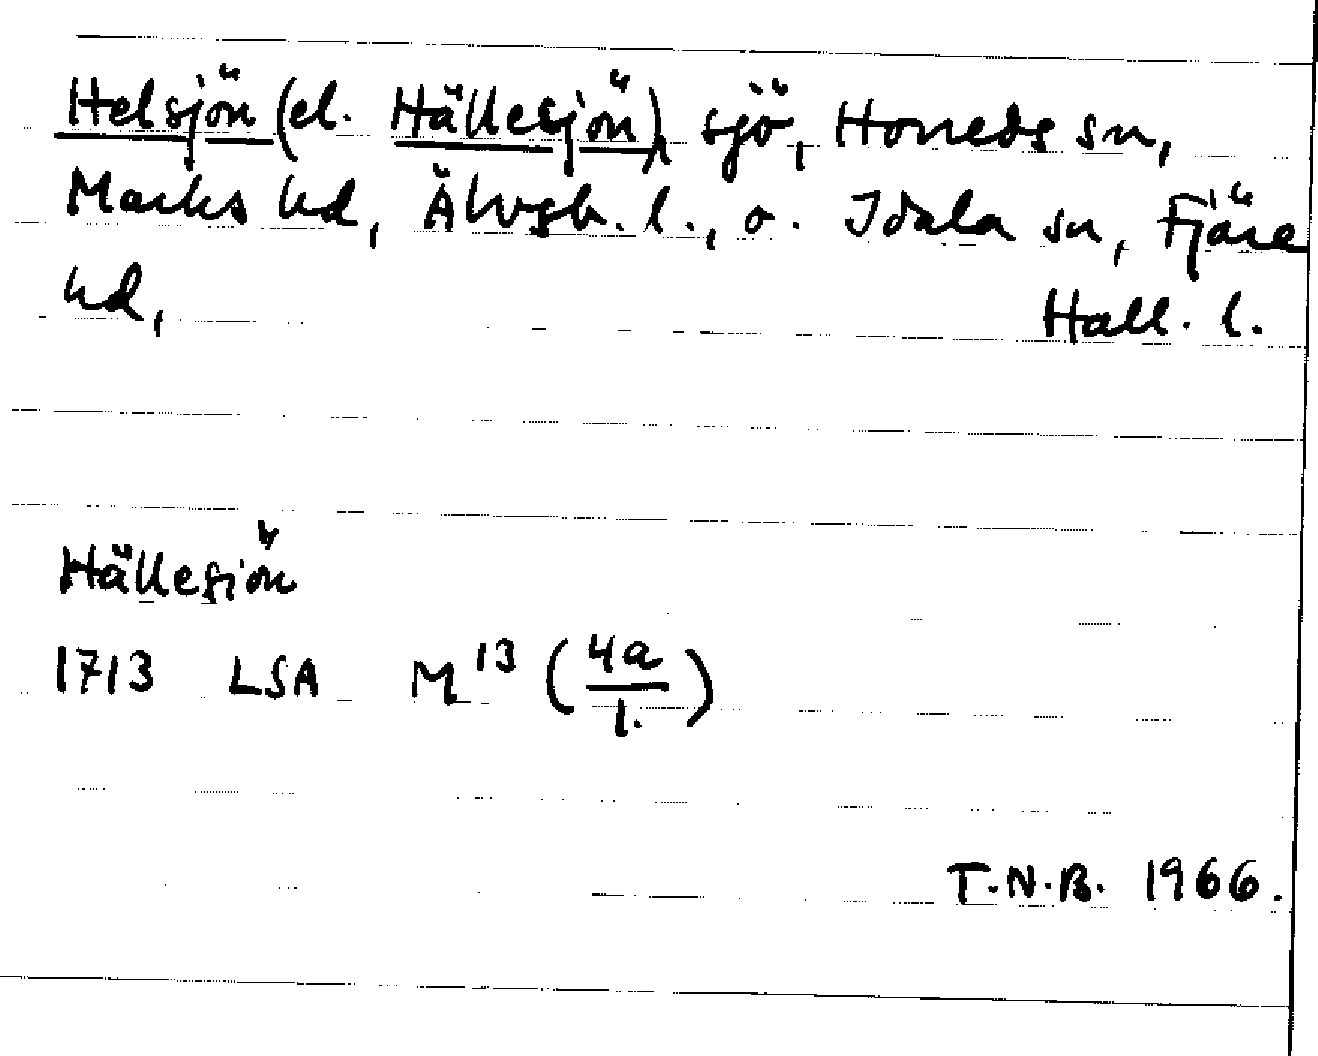 Helsjön (el. Hällesjön), sjö, Horreds sn,
Marks hd, Älvsb. l., o. Idala sn, Fjäre
hd, Hall. l.
Hällesiön
1713 LSA M¹³ (4a/1.)
T.N.B. 1966.